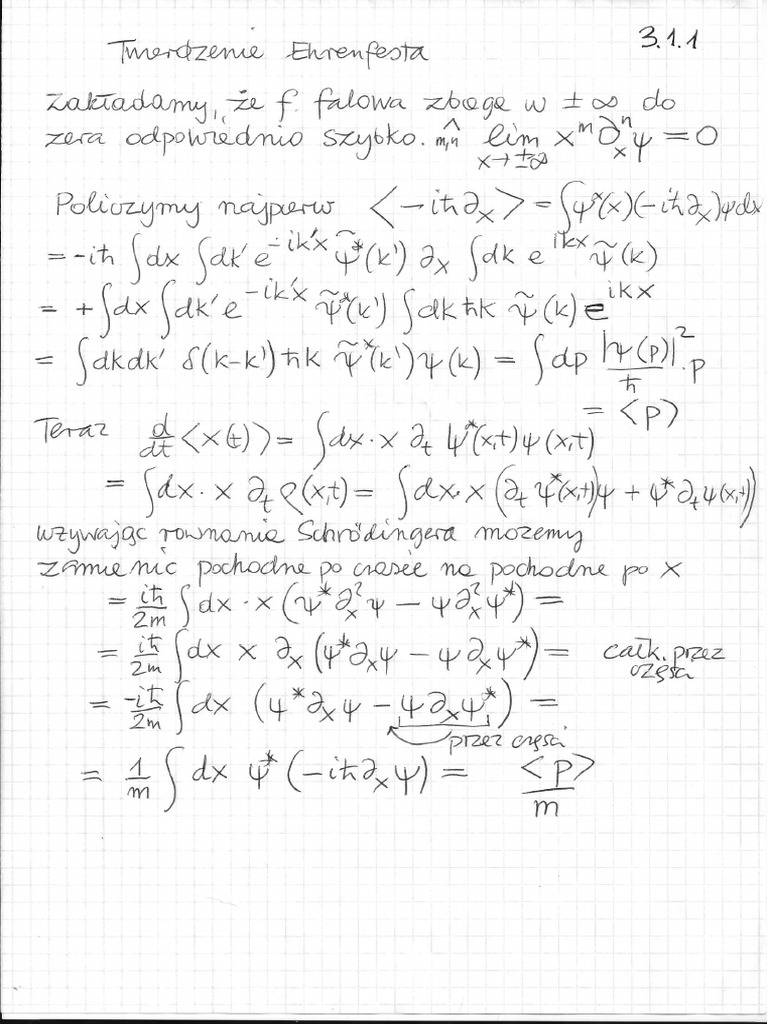 3.1.1
Twierdzenie Ehrenfesta
Zakładamy, że f. falowa zbega w ± ∞ do
zera odpowiednio szybko. ∧_{m,n} lim_{x→±∞} x^m ∂_x^n ψ = 0
Policzymy najpierw <-iħ∂_x> = ∫ψ*(x)(-iħ∂_x)ψdx
= -iħ ∫dx ∫dk' e^{-ik'x} ψ̃*(k') ∂_x ∫dk e^{ikx} ψ̃(k)
= +∫dx ∫dk' e^{-ik'x} ψ̃*(k') ∫dk ħk ψ̃(k) e^{ikx}
= ∫dkdk' δ(k-k') ħk ψ̃*(k') ψ(k) = ∫dp |ψ(p)|²/ħ · p
= <p>
Teraz d/dt <x(t)> = ∫dx · x ∂_t ψ*(x,t)ψ(x,t)
= ∫dx · x ∂_t ρ(x,t) = ∫dx · x (∂_t ψ*(x,t)ψ + ψ*∂_tψ(x,t))
wzywając rownania Schrödingera możemy
zamienić pochodne po czasie na pochodne po x
= iħ/2m ∫dx · x (ψ*∂_x²ψ - ψ∂_x²ψ*) =
= iħ/2m ∫dx x ∂_x (ψ*∂_xψ - ψ∂_xψ*) = całk. przez częsci
= -iħ/2m ∫dx (ψ*∂_xψ - ψ∂_xψ*) =
przez częsci
= 1/m ∫dx ψ*(-iħ∂_xψ) = <p>/m